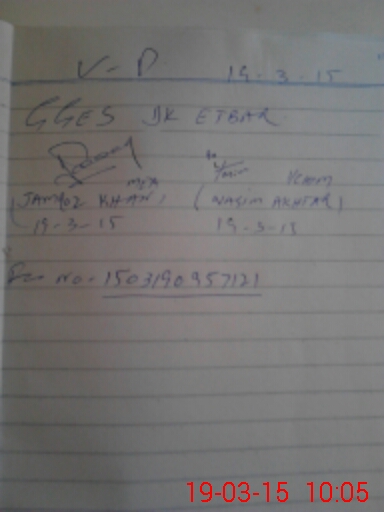 V-P 19-3-15
GGES DK ETBAR
(JAMROZ KHAN) MEA (NASIM AKHTAR)
19-3-15 19-3-15
No. 1503190957121
19-03-15 10:05